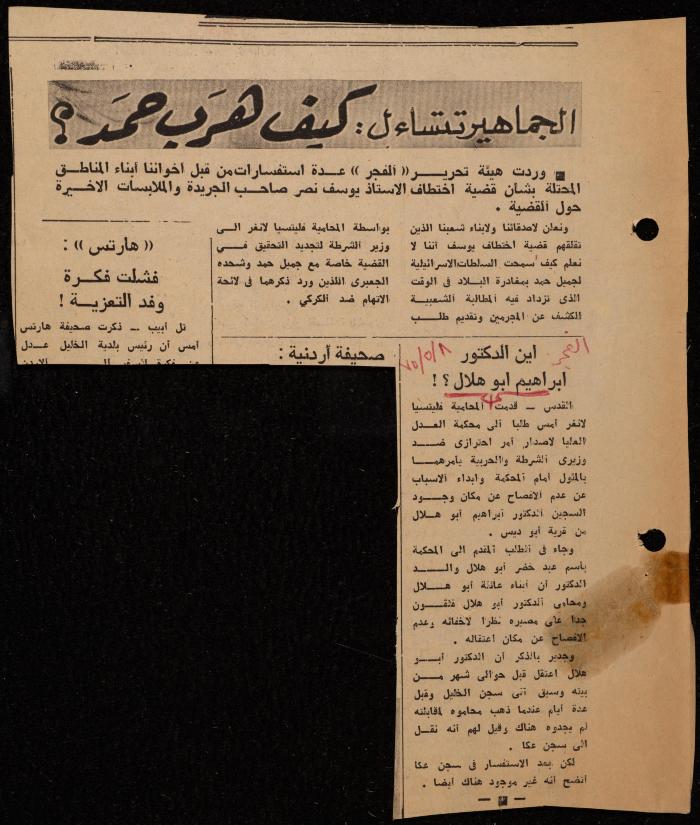 الجماهير تتساءل : كيف هرب حمد ؟
وردت هيئة تحرير « الفجر » عدة استفسارات من قبل اخواننا أبناء المناطق
المحتلة بشأن قضية اختطاف الاستاذ يوسف نصر صاحب الجريدة والملابسات الاخيرة
حول القضية .
ونعلن لاصدقائنا ولابناء شعبنا الذين
تقلقهم قضية اختطاف يوسف أننا لا
نعلم كيف سمحت السلطات الاسرائيلية
لجميل حمد بمغادرة البلاد في الوقت
الذي تزداد فيه المطالبة الشعبية
الكشف عن المجرمين وتقديم طلب
بواسطة المحامية فليتسيا لانغر الى
وزير الشرطة لتجديد التحقيق في
القضية خاصة مع جميل حمد وشحده
الجعبري اللذين ورد ذكرهما في لائحة
الاتهام ضد الكركي .
« هارتس » :
فشلت فكرة
وفد التعزية !
تل أبيب ــ ذكرت صحيفة هارتس
أمس أن رئيس بلدية الخليل عدل
صحيفة أردنية :
الفجر
٧٥/٥/٨
اين الدكتور
ابراهيم ابو هلال ؟ !
القدس ــ قدمت المحامية فليتسيا
لانغر أمس طلبا الى محكمة العدل
العليا لاصدار أمر احترازي ضد
وزيري الشرطة والحربية يأمرهما
بالمثول أمام المحكمة وابداء الاسباب
عن عدم الافصاح عن مكان وجود
السجين الدكتور أبراهيم أبو هلال
من قرية أبو ديس .
وجاء في الطلب المقدم الى المحكمة
باسم عبد خضر أبو هلال والد
الدكتور أن أبناء عائلة أبو هلال
ومحامي الدكتور أبو هلال قلقون
جدا على مصيره نظرا لاخفائه وعدم
الافصاح عن مكان اعتقاله .
وجدير بالذكر أن الدكتور أبو
هلال اعتقل قبل حوالى شهر من
بيته وسيق الى سجن الخليل وقبل
عدة أيام عندما ذهب محاموه لمقابلته
لم يجدوه هناك وقيل لهم أنه نقل
الى سجن عكا .
لكن بعد الاستفسار في سجن عكا
اتضح أنه غير موجود هناك أيضا .